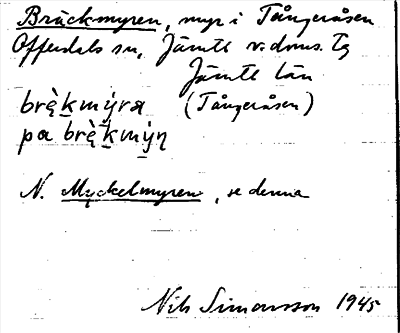 Bräckmyren, myr i Tångeråsen
Offerdals sn, Jämtl. v. doms. tg
Jämtl län
brę̀kmýra (Tångeråsen)
pa brę̀kmýn
N. Myckelmyren, se denna
Nils Simonsson 1945